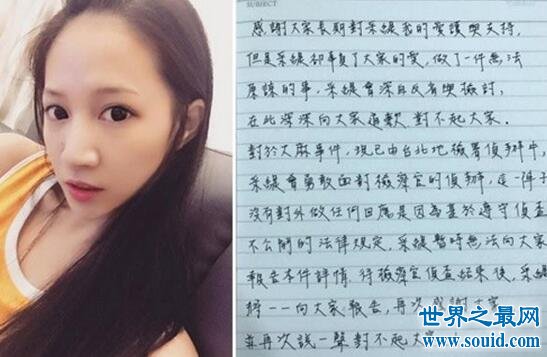 SUBJECT
感謝大家長期對采緹我的愛護與支持,
但是采緹卻辜負了大家的愛,做了一件無法
原諒的事,采緹會深自反省與檢討,
在此深深向大家道歉,對不起大家。
對於大麻事件,現已由台北地檢署偵辦中,
采緹會勇敢面對檢察官的偵辦,這一陣子
沒有對外做任何回應是因為基於遵守偵查
不公開的法律規定,采緹暫時無法向大家
報告本件詳情,待檢察官偵查結束後,采緹
將一一向大家報告,再次感謝大家
並再次說一聲對不起大家
世界之最网
www.souid.com